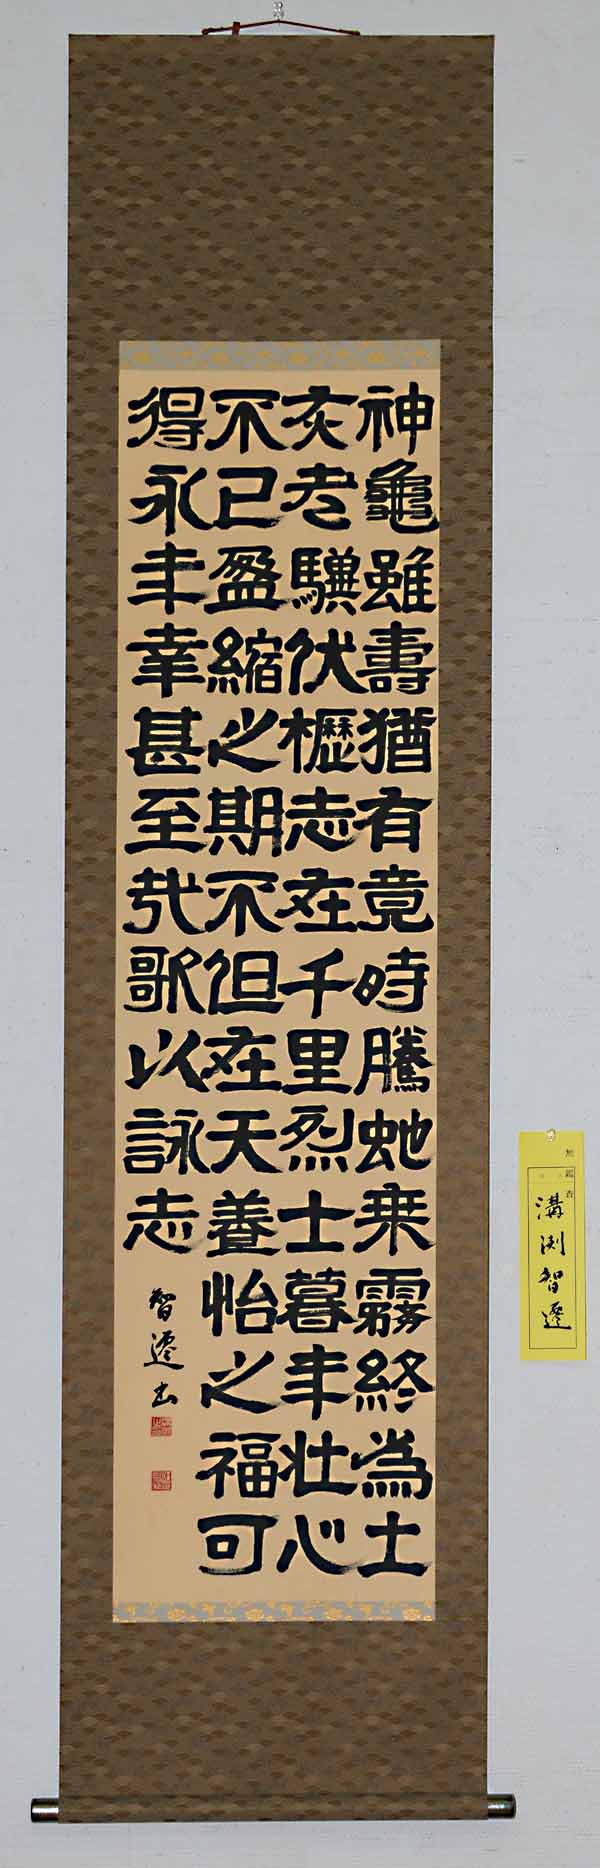 神龜雖壽猶有竟時騰虵乗霧終為土
灰老驥伏櫪志在千里烈士暮年壮心
不已盈縮之期不但在天養怡之福可
得永年幸甚至哉歌以詠志
智遷書
無鑑査
溝渕智遷